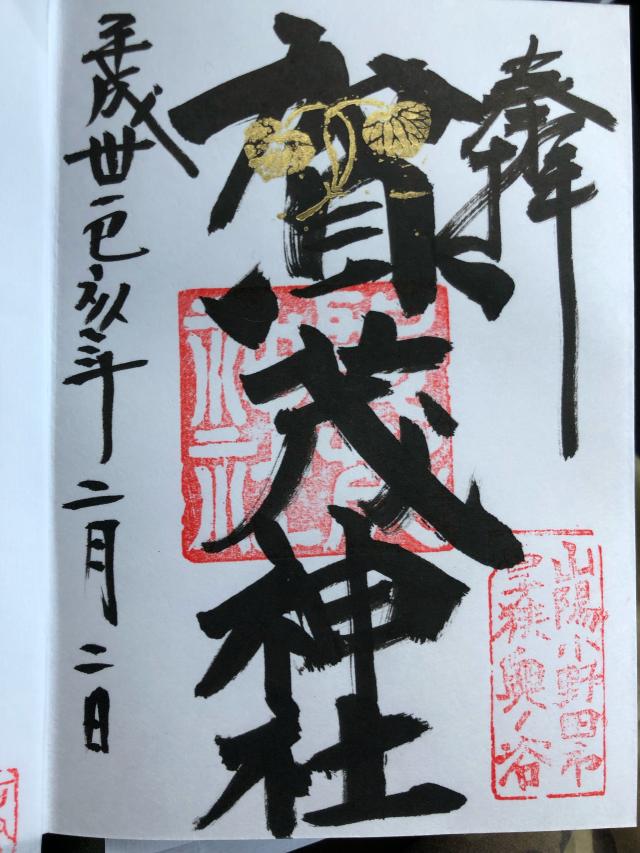 奉拝
賀茂神社
平成卅一己亥年二月二日
山陽小野田市